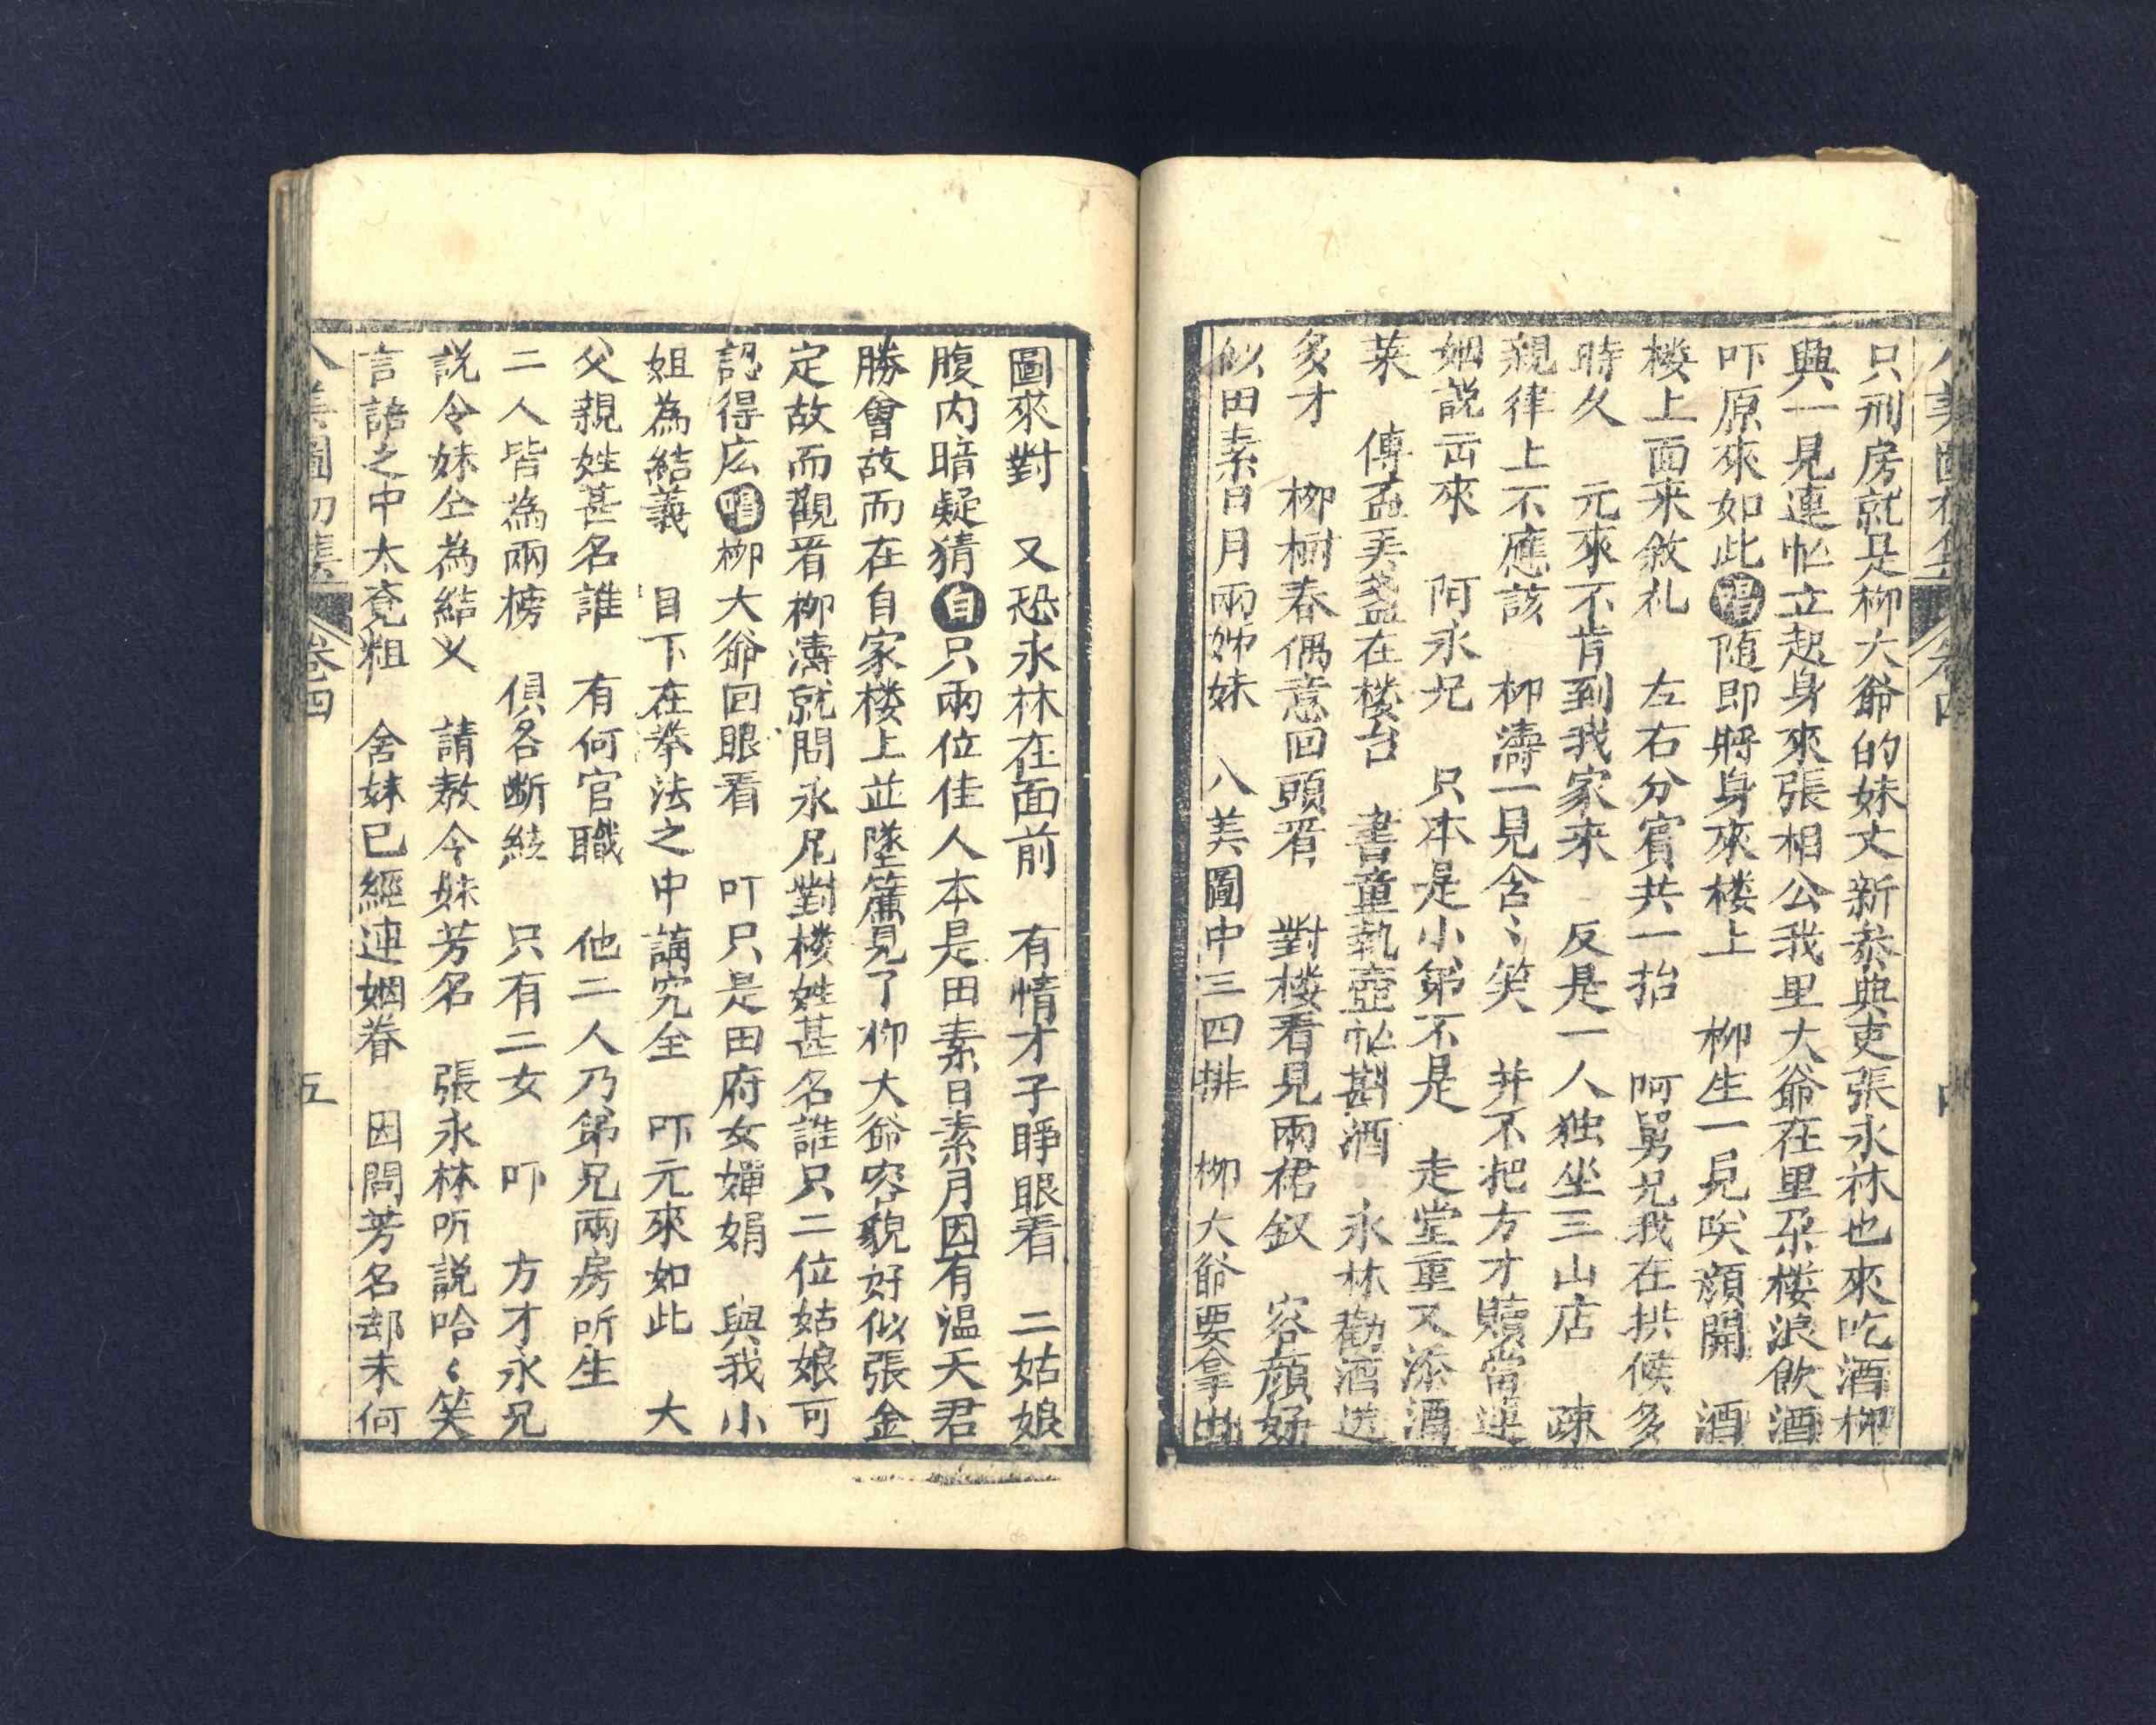 只刑房就是柳大爺的妹丈新叅典吏張永林也來吃酒柳
興一見連忙立起身來張相公我里大爺在里朶楼浪飲酒
吓原來如此唱随即將身來楼上　柳生一見咲顔開　酒
楼上面来敘礼　左右分賓共一抬　阿舅兄我在拱候多
時久　元來不肯到我家来　反是一人独坐三山店　疎
親律上不應該　柳濤一見含〻笑　并不把方才贖當運
姻説出來　阿永兄　只本是小弟不是　走堂重又添酒
菜　傳盃弄盞在楼台　書童執壺忙斟酒　永林勸酒逞
多才　柳樹春偶意回頭看　對楼看見兩裙釵　容顔好
似田素日月兩姊妹　八美圖中三四排　柳大爺要拿出
圖來對　又恐永林在面前　有情才子睜眼看　二姑娘
腹内暗疑猜白只兩位佳人本是田素日素月因有温天君
勝會故而在自家楼上並墜簾見了柳大爺容貌好似張金
定故而觀看柳濤就問永兄對楼姓甚名誰只二位姑娘可
認得庅唱柳大爺回眼看　吖只是田府女嬋娟　與我小
姐為結義　目下在拳法之中講究全　吓元來如此　大
父親姓甚名誰　有何官職　他二人乃弟兄兩房所生
二人皆為兩榜　俱各断絃　只有二女　吓　方才永兄
説令妹仝為結义　請教令妹芳名　張永林听説哈〻笑
言語之中太竟粗　舍妹已經連姻眷　因問芳名却未何
八美圖初集　卷四　五